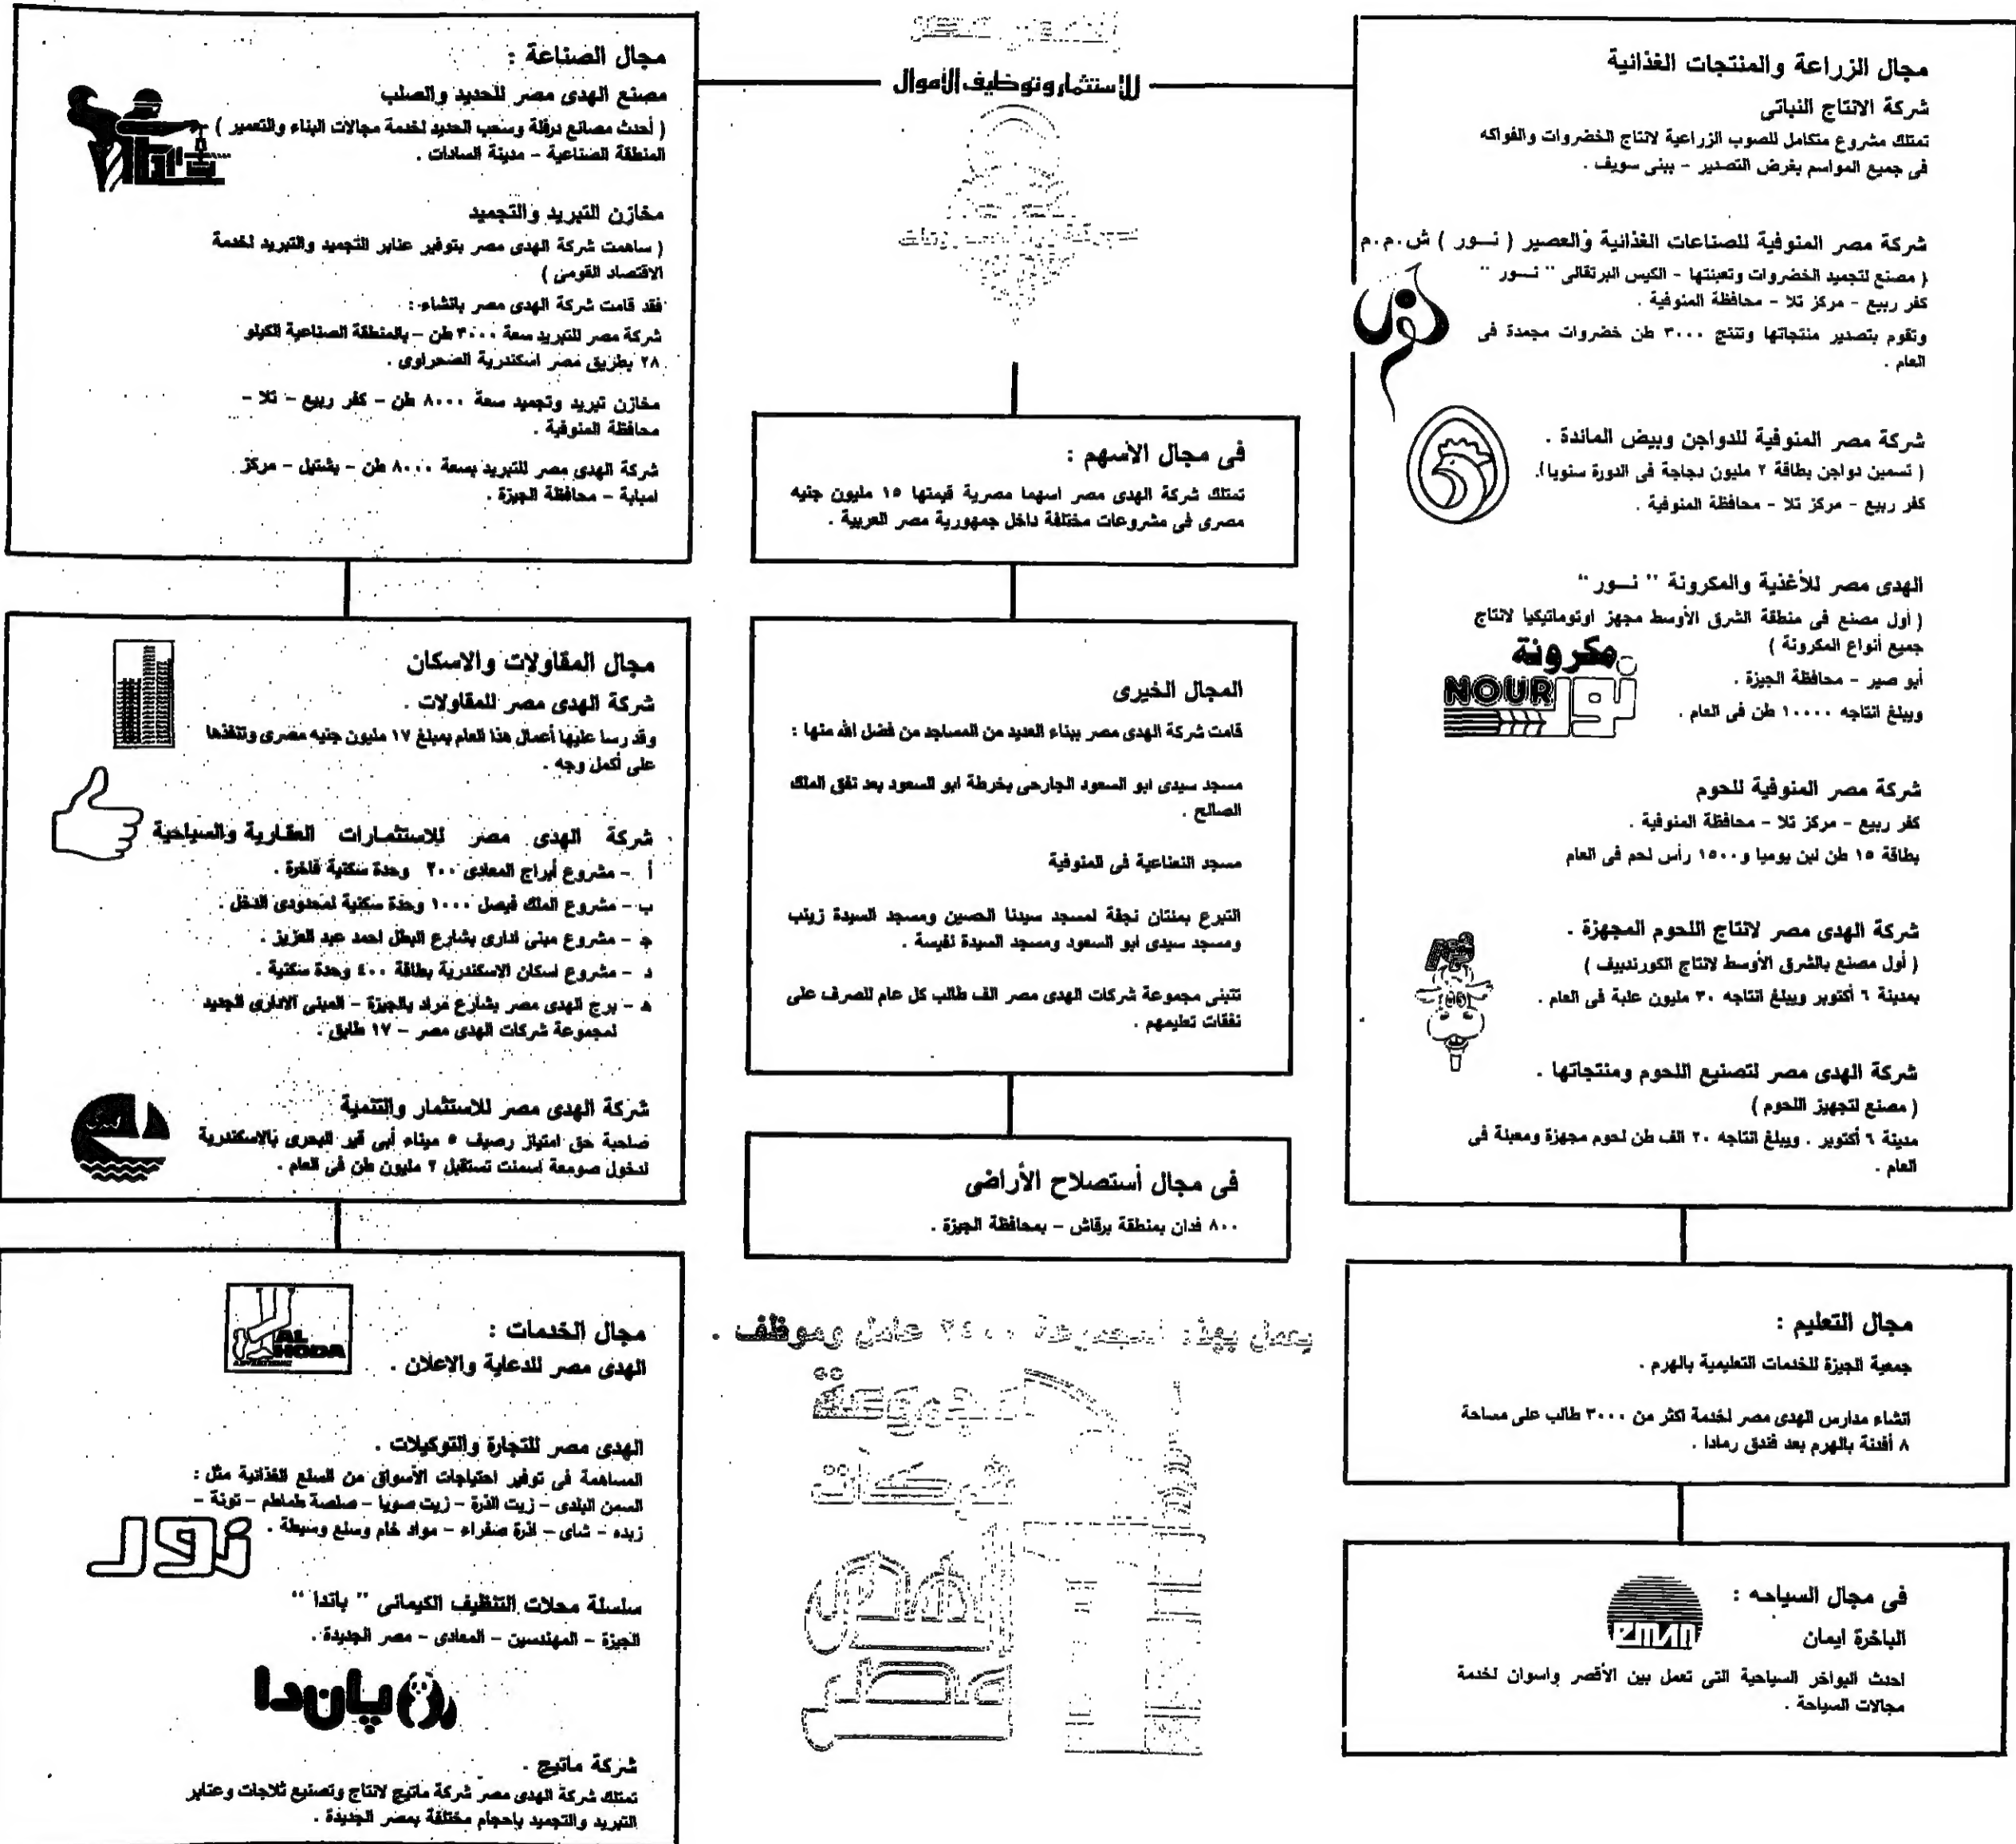 للإستثمار وتوظيف الأموال
مجال الزراعة والمنتجات الغذائية
شركة الانتاج النباتى
تمتلك مشروع متكامل للصوب الزراعية لانتاج الخضروات والفواكه
فى جميع المواسم بغرض التصدير - ببنى سويف .
شركة مصر المنوفية للصناعات الغذائية والعصير ( نــور ) ش.م.م
( مصنع لتجميد الخضروات وتعبئتها - الكيس البرتقالى " نــور "
كفر ربيع - مركز تلا - محافظة المنوفية .
وتقوم بتصدير منتجاتها وتنتج ٣٠٠٠ طن خضروات مجمدة فى
العام .
نور
شركة مصر المنوفية للدواجن وبيض المائدة .
( تسمين دواجن بطاقة ٢ مليون دجاجة فى الدورة سنويا ).
كفر ربيع - مركز تلا - محافظة المنوفية .
الهدى مصر للأغذية والمكرونة " نــور "
( أول مصنع فى منطقة الشرق الأوسط مجهز اوتوماتيكيا لانتاج
جميع أنواع المكرونة )
أبو صير - محافظة الجيزة .
ويبلغ انتاجه ١٠٠٠٠ طن فى العام .
مكرونة
نور NOUR
شركة مصر المنوفية للحوم
كفر ربيع - مركز تلا - محافظة المنوفية .
بطاقة ١٥ طن لبن يوميا و ١٥٠٠ رأس لحم فى العام
شركة الهدى مصر لانتاج اللحوم المجهزة .
( أول مصنع بالشرق الأوسط لانتاج الكورندبيف )
بمدينة ٦ أكتوبر ويبلغ انتاجه ٣٠ مليون علبة فى العام .
شركة الهدى مصر لتصنيع اللحوم ومنتجاتها .
( مصنع لتجهيز اللحوم )
مدينة ٦ أكتوبر . ويبلغ انتاجه ٢٠ الف طن لحوم مجهزة ومعبئة فى
العام .
مجال التعليم :
جمعية الجيزة للخدمات التعليمية بالهرم .
انشاء مدارس الهدى مصر لخدمة اكثر من ٣٠٠٠ طالب على مساحة
٨ أفدنة بالهرم بعد فندق رمادا .
فى مجال السياحه :
الباخرة ايمان
احدث البواخر السياحية التى تعمل بين الأقصر واسوان لخدمة
مجالات السياحة .
eman
فى مجال الأسهم :
تمتلك شركة الهدى مصر اسهما مصرية قيمتها ١٥ مليون جنيه
مصرى فى مشروعات مختلفة داخل جمهورية مصر العربية .
المجال الخيرى
قامت شركة الهدى مصر ببناء العديد من المساجد من فضل الله منها :
مسجد سيدى ابو السعود الجارحى بخرطة ابو السعود بعد نفق الملك
الصالح .
مسجد النعناعية فى المنوفية
التبرع بمئتان نجفة لمسجد سيدنا الحسين ومسجد السيدة زينب
ومسجد سيدى ابو السعود ومسجد السيدة نفيسة .
تتبنى مجموعة شركات الهدى مصر الف طالب كل عام للصرف على
نفقات تعليمهم .
فى مجال أستصلاح الأراضى
٨٠٠ فدان بمنطقة برقاش - بمحافظة الجيزة .
يعمل بهذه المجموعة ٢٤٠٠ عامل وموظف .
مجموعة
شركات
الهدى
مصر
مجال الصناعة :
مصنع الهدى مصر للحديد والصلب
( أحدث مصانع درفلة وسحب الحديد لخدمة مجالات البناء والتعمير )
المنطقة الصناعية - مدينة السادات .
مخازن التبريد والتجميد
( ساهمت شركة الهدى مصر بتوفير عنابر التجميد والتبريد لخدمة
الاقتصاد القومى )
فقد قامت شركة الهدى مصر بانشاء :
شركة مصر للتبريد سعة ٣٠٠٠ طن - بالمنطقة الصناعية الكيلو
٢٨ بطريق مصر اسكندرية الصحراوى .
مخازن تبريد وتجميد سعة ٨٠٠٠ طن - كفر ربيع - تلا -
محافظة المنوفية .
شركة الهدى مصر للتبريد بسعة ٨٠٠٠ طن - بشتيل - مركز
امبابة - محافظة الجيزة .
مجال المقاولات والاسكان
شركة الهدى مصر للمقاولات .
وقد رسا عليها أعمال هذا العام بمبلغ ١٧ مليون جنيه مصرى وتنفذها
على أكمل وجه .
شركة الهدى مصر للاستثمارات العقارية والسياحية
أ - مشروع أبراج المعادى ٢٠٠ وحدة سكنية فاخرة .
ب - مشروع الملك فيصل ١٠٠٠ وحدة سكنية لمحدودى الدخل .
جـ - مشروع مبنى ادارى بشارع البطل احمد عبد العزيز .
د - مشروع اسكان الاسكندرية بطاقة ٤٠٠ وحدة سكنية .
هـ - برج الهدى مصر بشارع مراد بالجيزة - المبنى الادارى الجديد
لمجموعة شركات الهدى مصر - ١٧ طابق .
شركة الهدى مصر للاستثمار والتنمية
صاحبة حق امتياز رصيف ٥ ميناء أبى قير البحرى بالاسكندرية
لدخول صومعة اسمنت تستقبل ٢ مليون طن فى العام .
مجال الخدمات :
الهدى مصر للدعاية والاعلان .
AL HODA
ADVERTISING
الهدى مصر للتجارة والتوكيلات .
المساهمة فى توفير احتياجات الأسواق من السلع الغذائية مثل :
السمن البلدى - زيت الذرة - زيت صويا - صلصة طماطم - تونة -
زبده - شاى - اذرة صفراء - مواد خام وسلع وسيطة .
نور
سلسلة محلات التنظيف الكيمائى " باندا "
الجيزة - المهندسين - المعادى - مصر الجديدة .
پاندا
شركة ماتيج .
تمتلك شركة الهدى مصر شركة ماتيج لانتاج وتصنيع ثلاجات وعنابر
التبريد والتجميد باحجام مختلفة بمصر الجديدة .